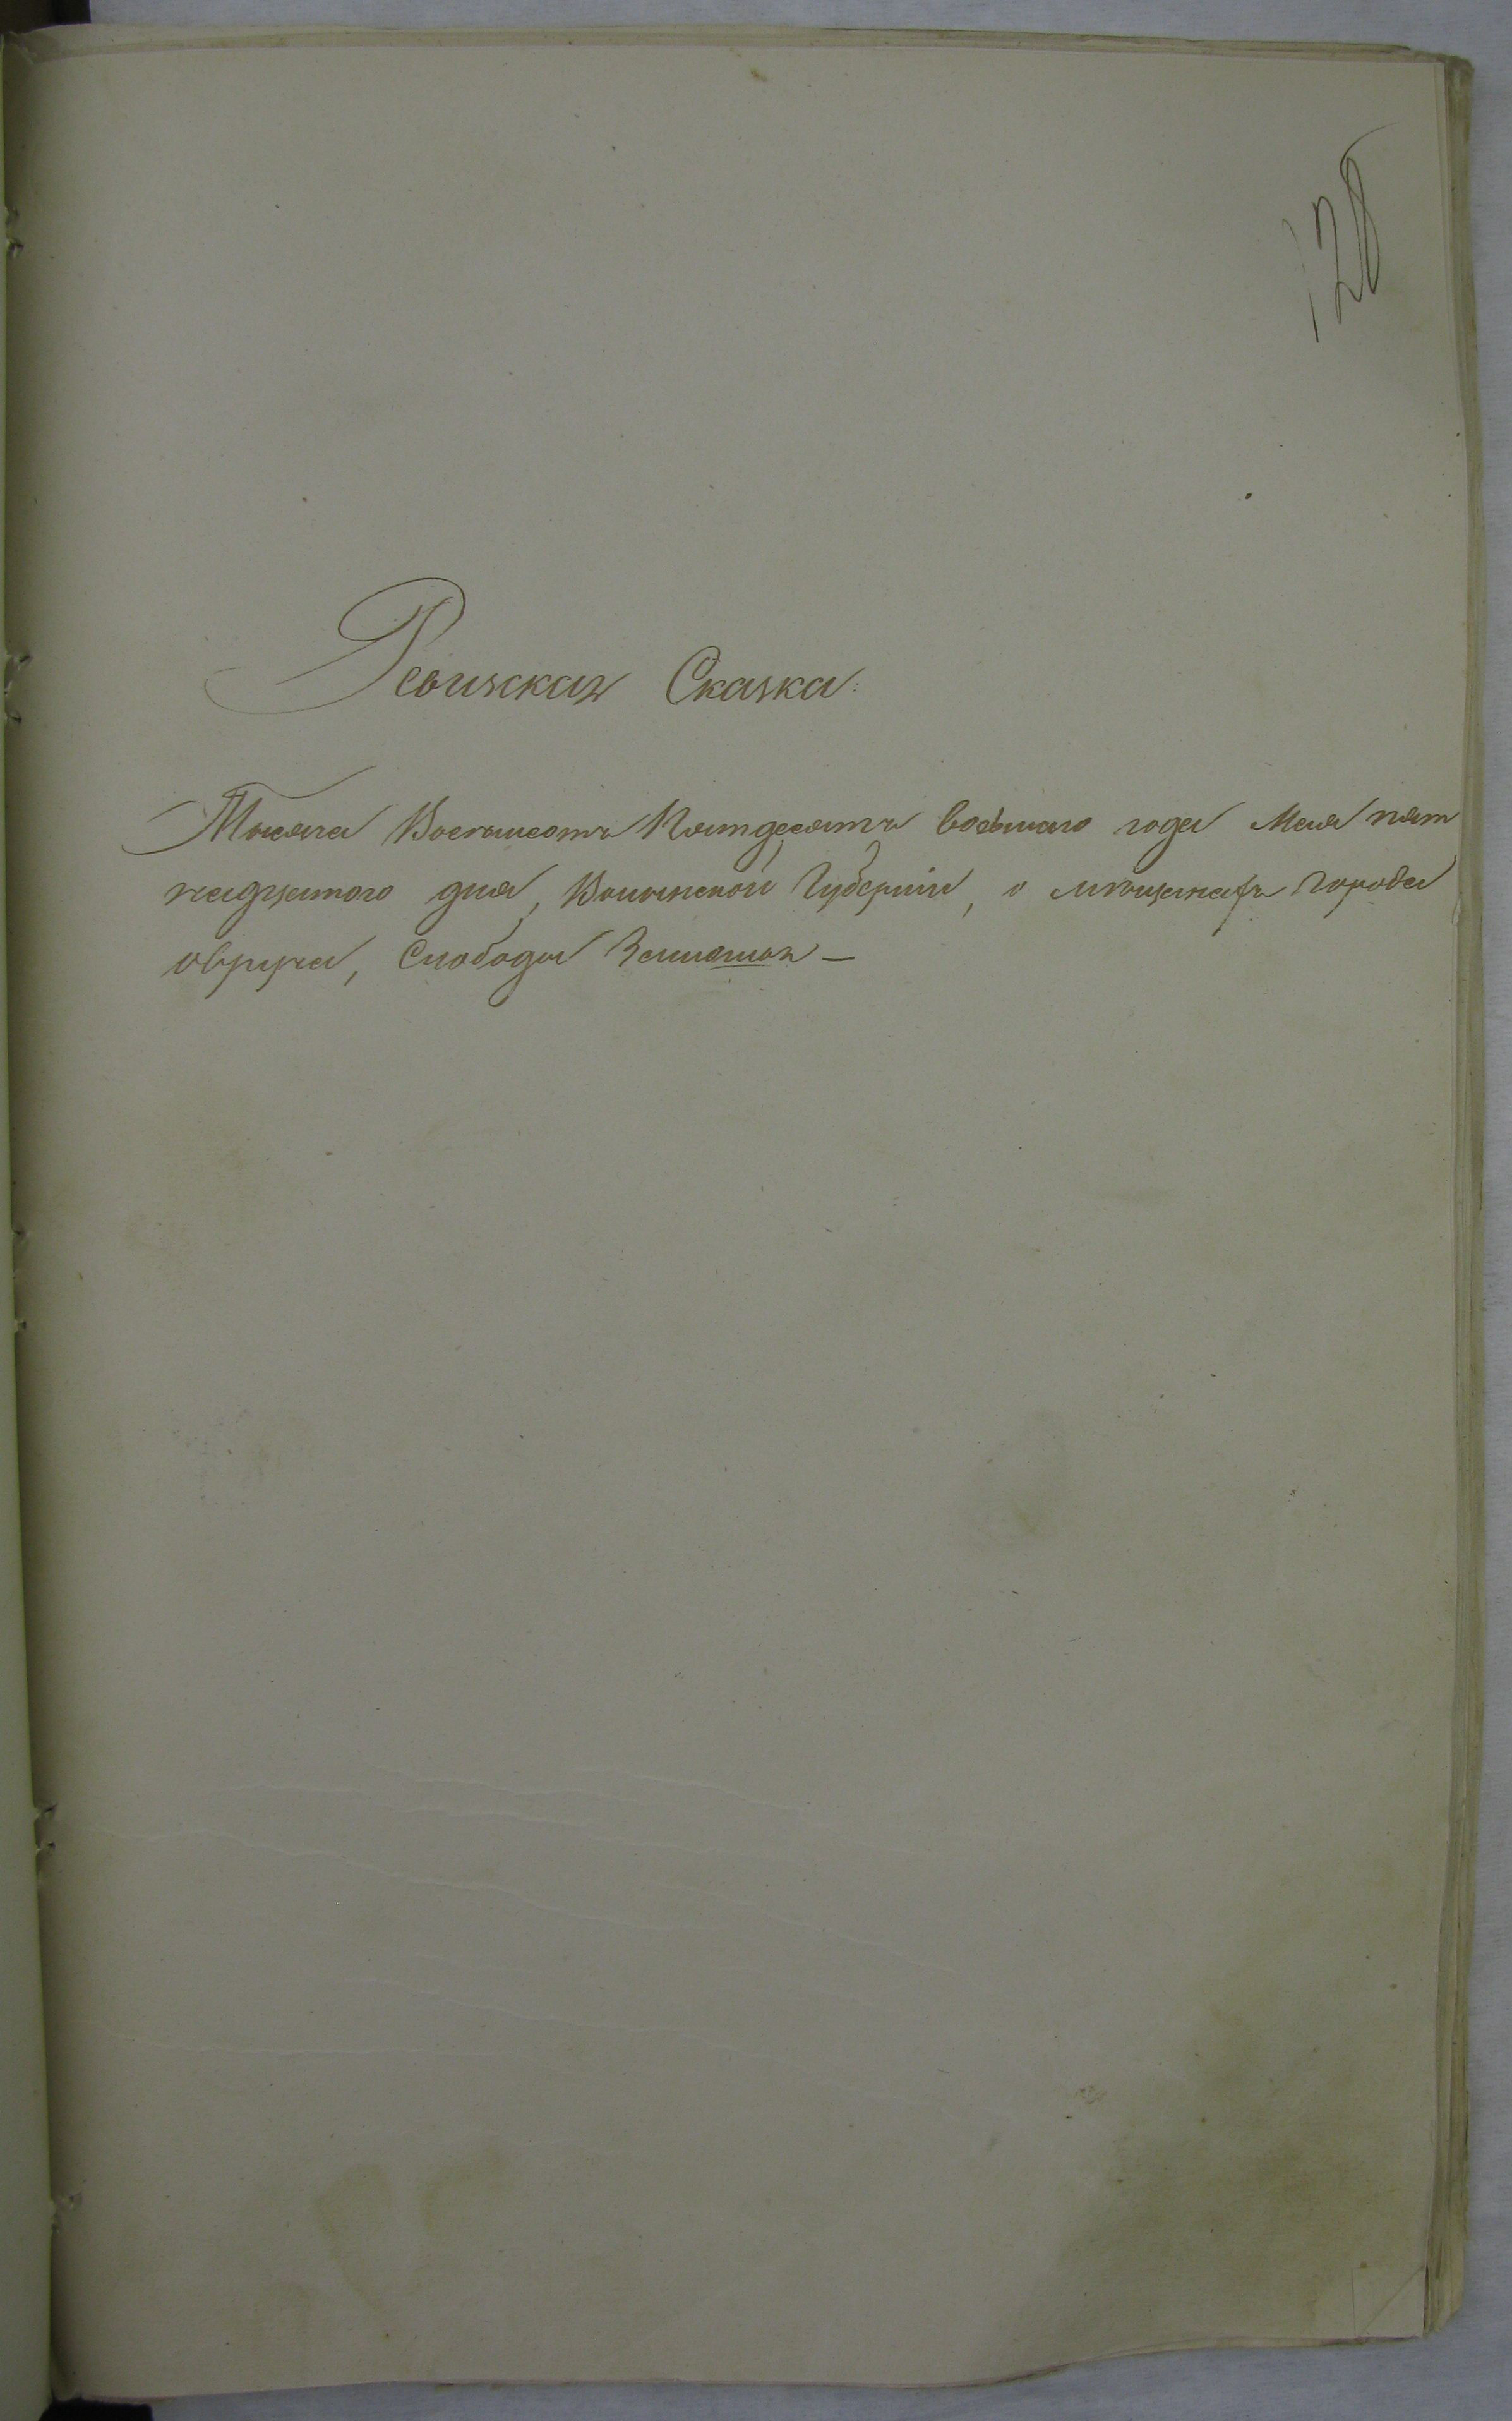 128
Ревизская Сказка:
Тысяча Восемьсотъ Пятдесятъ восьмаго года Мая пят
надцатого дня, Волынской Губерніи, о мѣщанахъ Города
овруча, Слободы